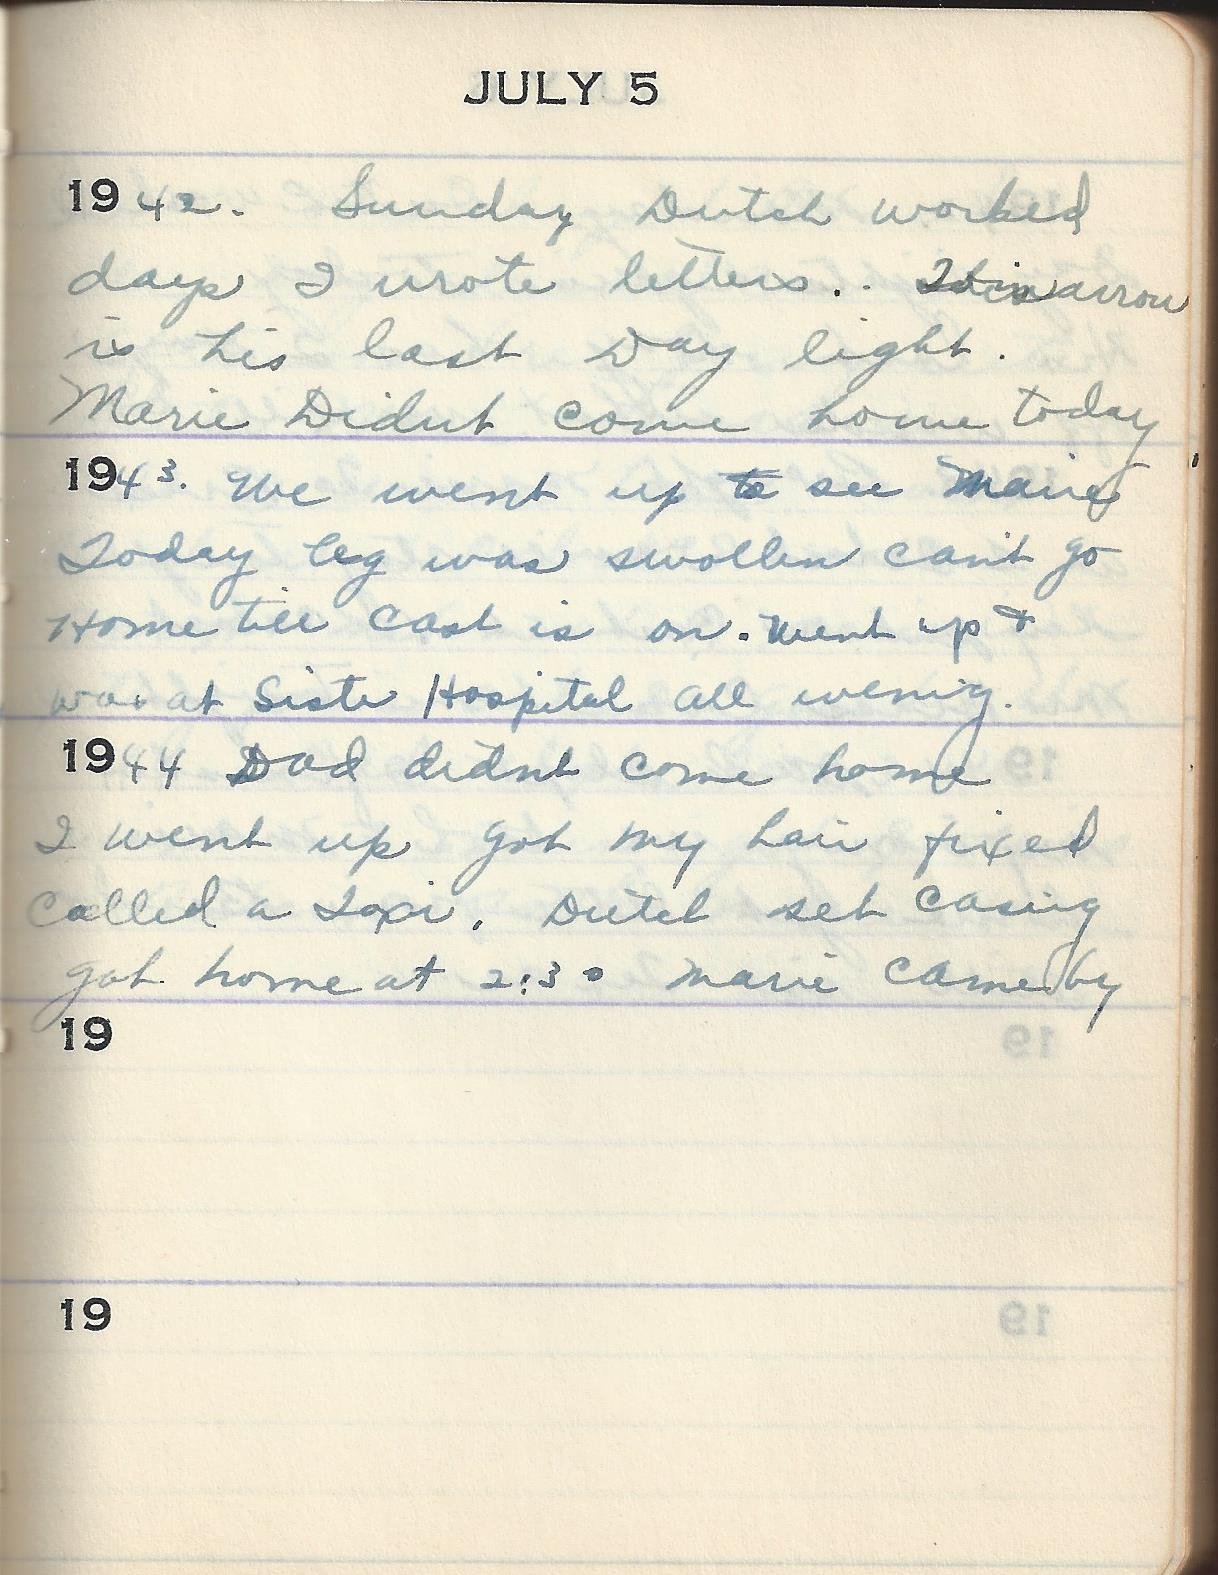 JULY 5
1942. Sunday Dutch worked
days I wrote letters..
is his last Day light.
Marie Didnt come home today
1943. We went up to see Marie
Today leg was swollen can't go
Home till cast is on. Went up &
was at Siste Hospital all evenig.
1944 Dad didnt come home
I went up got my hair fixed
Called a Taxi. Dutch set casing
got home at 2:30 Marie came by
19
19